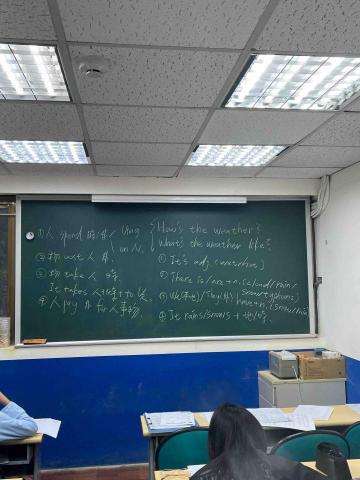 ① 人 spend 時/錢 Ving
on N.
② 物 cost 人 錢
③ 物 take 人 時
It takes 人 + 時 + to V
④ 人 pay 錢 for 人事物
How's the weather?
What's the weather like?
① It's adj.
② There is/are + n. (cloud/rain/
snow/typhoon)
③ We / They
have + n. (snow/rain
④ It rains/snows + 地/時.